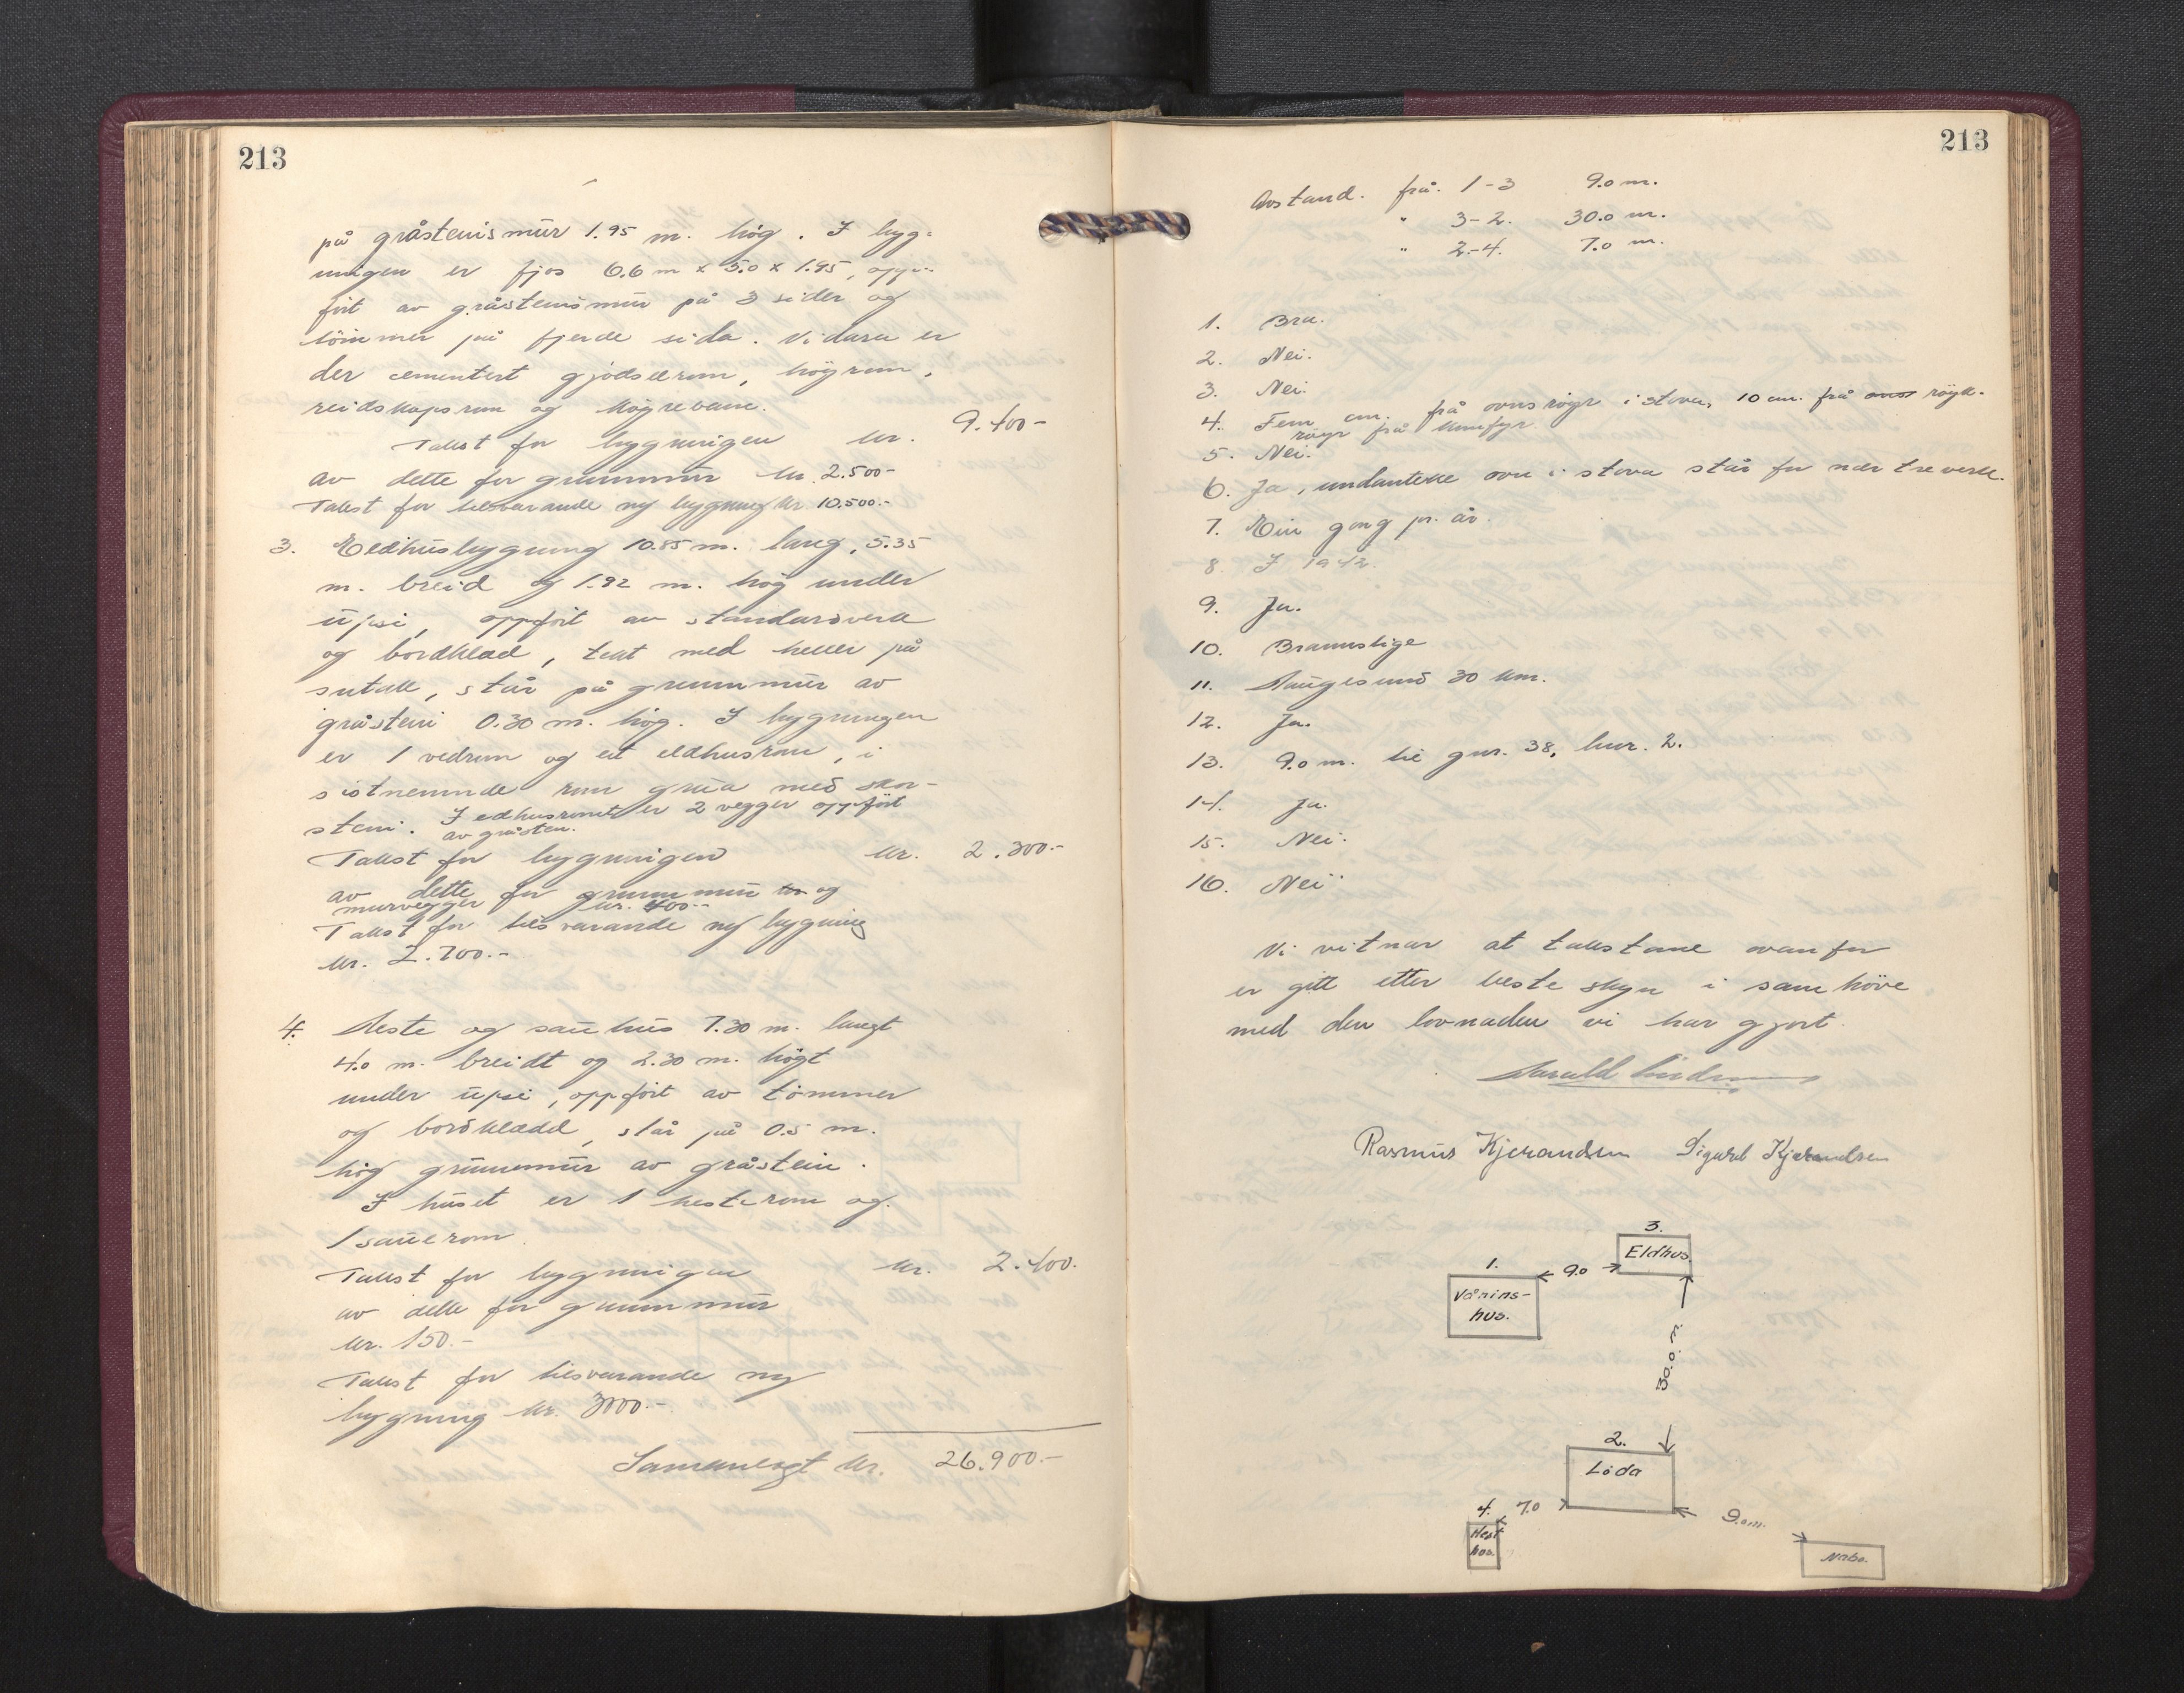 213
på gråsteinsmur 1.95 m. høg. I byg-
ningen er fjos 6.6 m x 5.0 x 1.95, opp-
ført av gråsteinsmur på 3 sider og
tømmer på fjerde sida. Vidare er
der cementert gjødselrom, högrom,
reidskapsrom og högrebane.
Takst for bygningen kr. 9.400-
av dette for grunnmur kr. 2.500-
Takst for tilsvarande ny bygning kr 10.500.-
3. Eldhusbygning 10.85 m. lang, 5.35
m. breid og 1.92 m. høg under
upsi, oppført av standarsverk
og bordklæd, tekt med heller på
sutak, står på grunnmur av
gråstein 0.30 m. høg. I bygningen
er 1 vedrom og eit eldhusrom, i
sistnemnde rom grua med skor-
stein. I edhusromet er 2 vegger oppført
av gråsten.
Takst for bygningen kr. 2.300.-
av dette for grunnmur og
murvegger kr. 400.-
Takst for tilsvarande ny bygning
kr. 2.700.-
4. Heste og sauhus 7.30 m. langt
4.0 m. breidt og 2.30 m. høgt
under upsi, oppført av tömmer
og bordklædd, står på 0.5 m.
høg grunnmur av gråstein.
I huset er 1 hesterom og
1 sauerom.
Takst for bygningen kr. 2.400.
av dette for grunnmur
kr. 150.-
Takst for tilsvarande ny
bygning kr. 3000.-
Samanlagt kr. 26.900.-
213
Avstand. frå. 1-3 9.0 m.
" 3-2. 30.0 m.
" 2-4. 7.0 m.
1. Bra.
2. Nei.
3. Nei.
4. Fem cm. frå ovnsrøyr i stova, 10 cm. frå røyk-
røyr frå komfyr.
5. Nei.
6. Ja, undanteke ovn i stova står for nær treverk.
7. Ein gong pr. år.
8. I 1942.
9. Ja.
10. Brannstige
11. Haugesund 30 km.
12. Ja.
13. 9.0 m. til gnr. 38, bnr. 2.
14. Ja.
15. Nei.
16. Nei
Vi vitnar at takstane ovanfor
er gitt etter beste skyn i samhöve
med den lovnaden vi har gjort.
Harald
Rasmus Kjerandsen Sigurd Kjerandsen
3.
Eldhus.
1.
9.0
Vånins-
hus.
30.0 m.
2.
Löda
4.
7.0
9.0 m.
Hest
hus.
Nabo.